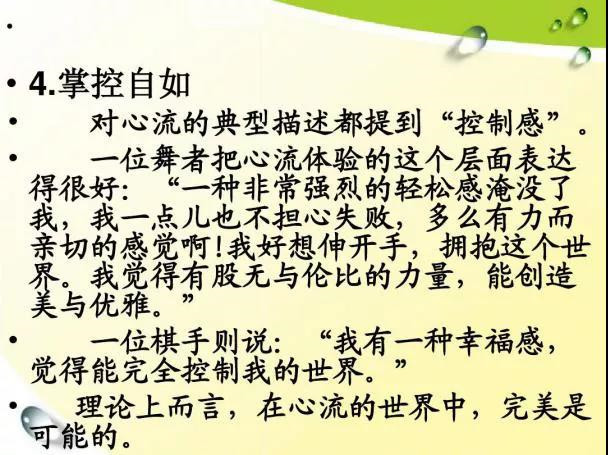 4.掌控自如
对心流的典型描述都提到“控制感”。
一位舞者把心流体验的这个层面表达
得很好：“一种非常强烈的轻松感淹没了
我，我一点儿也不担心失败，多么有力而
亲切的感觉啊!我好想伸开手，拥抱这个世
界。我觉得有股无与伦比的力量，能创造
美与优雅。”
一位棋手则说：“我有一种幸福感，
觉得能完全控制我的世界。”
理论上而言，在心流的世界中，完美是
可能的。